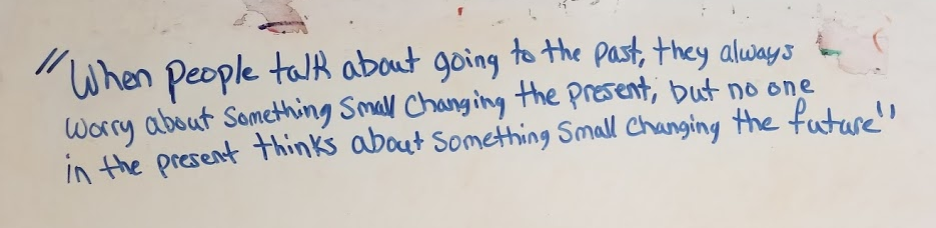 "When people talk about going to the past, they always
worry about something small changing the present, but no one
in the present thinks about something small changing the future"